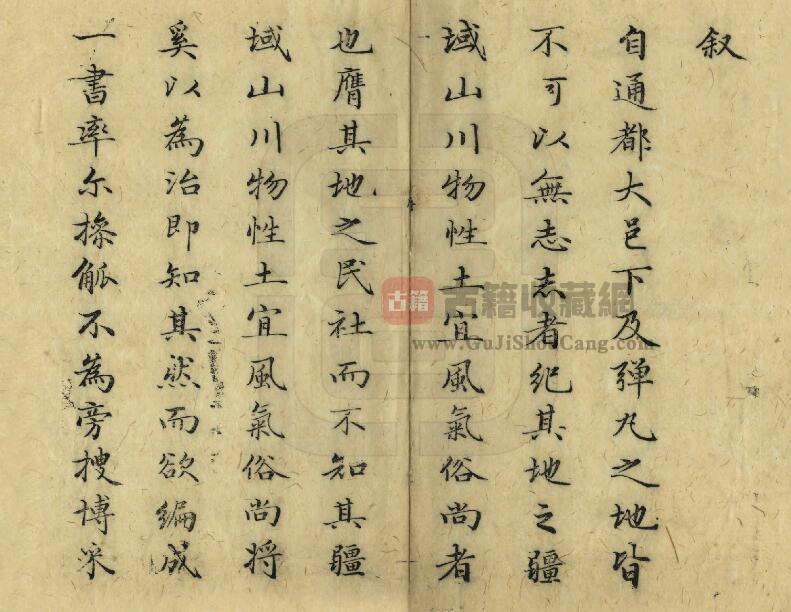 叙
自通都大邑下及弹丸之地皆
不可以無志志者纪其地之疆
域山川物性土宜風氣俗尚者
也膺其地之民社而不知其疆
域山川物性土宜風氣俗尚将
奚以為治即知其然而欲编成
一書率尔操觚不為旁搜博采
古籍
古籍收藏網
www.GuJiShouCang.com